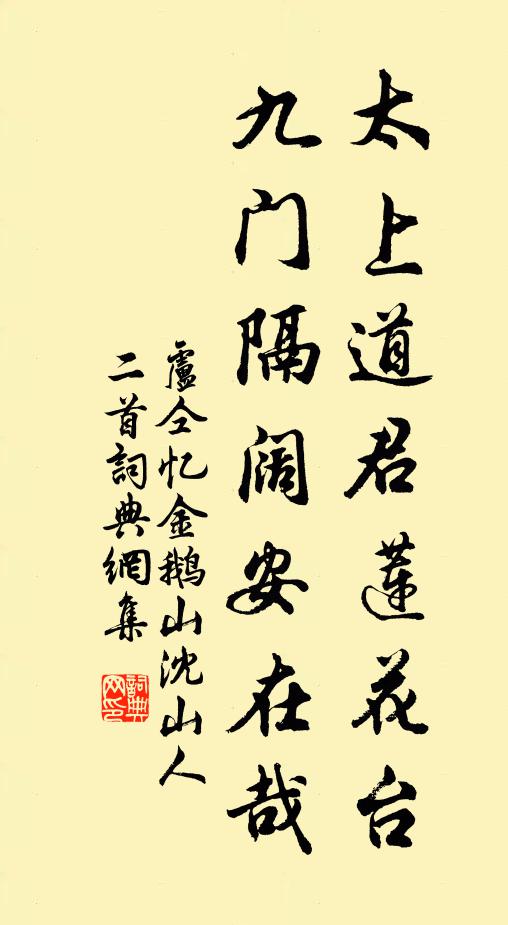 太上道君莲花台
九门隔阔安在哉
盧仝忆金鹅山沈山人
二首詞典網集
詞典网印